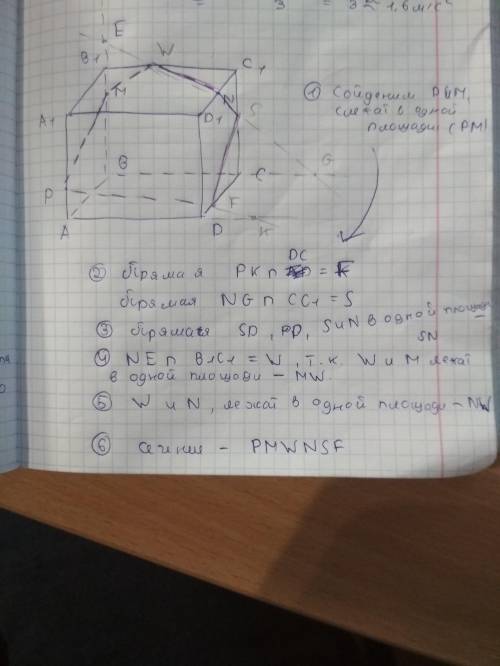 = 3 = 3 ≈ 1,6 м/с²
E
B1 W C1
M N
A1 D1 S
B C G
P F
A D K
① Соиденим P и M,
слежат в одной
площади (PM)
DC
② Прямая PK ∩ = F
Прямая NG ∩ CC1 = S
③ Прямая SD, PD, S и N в одной площади
SN
④ NE ∩ B1C1 = W, т.к. W и M лежат
в одной площади - MW.
⑤ W и N, лежат в одной площади - NW
⑥ сечения - PMWNSF